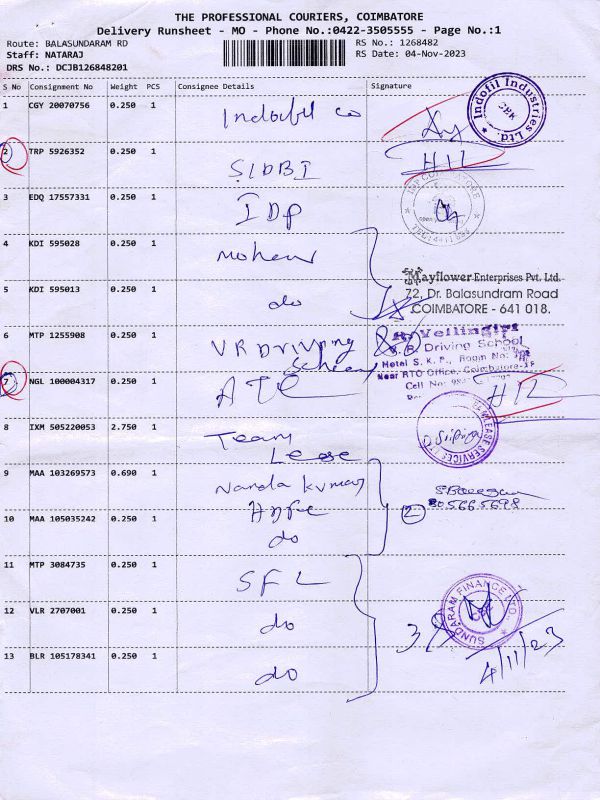 THE PROFESSIONAL COURIERS, COIMBATORE
Delivery Runsheet - MO - Phone No.:0422-3505555 - Page No.:1
Route: BALASUNDARAM RD RS No.: 1268482
Staff: NATARAJ RS Date: 04-Nov-2023
DRS No.: DCJB126848201
S No Consignment No Weight PCS Consignee Details Signature
1 CGY 20070756 0.250 1 Indofil co
Indofil Industries Ltd. CBK
2 TRP 5926352 0.250 1 SIDBI HIL
3 EDQ 17557331 0.250 1 IDP
4 KDI 595028 0.250 1 Mohan
5 KDI 595013 0.250 1 do
Mayflower Enterprises Pvt. Ltd.
72, Dr. Balasundram Road
COIMBATORE - 641 018.
6 MTP 1255908 0.250 1 VR Driving School
Vellingiri
Driving School
Hotel S. K. P., Room No:
Near RTO Office, Coimbatore-18
Cell No:
7 NGL 100004317 0.250 1 ATC HIL
8 IXM 505220053 2.750 1 Team Lease
9 MAA 103269573 0.690 1 Nanda Kumar
HDFC
10 MAA 105035242 0.250 1 do 2
11 MTP 3084735 0.250 1 SFL
12 VLR 2707001 0.250 1 do 3
SUNDARAM FINANCE LTD.
13 BLR 105178341 0.250 1 do 4/11/23